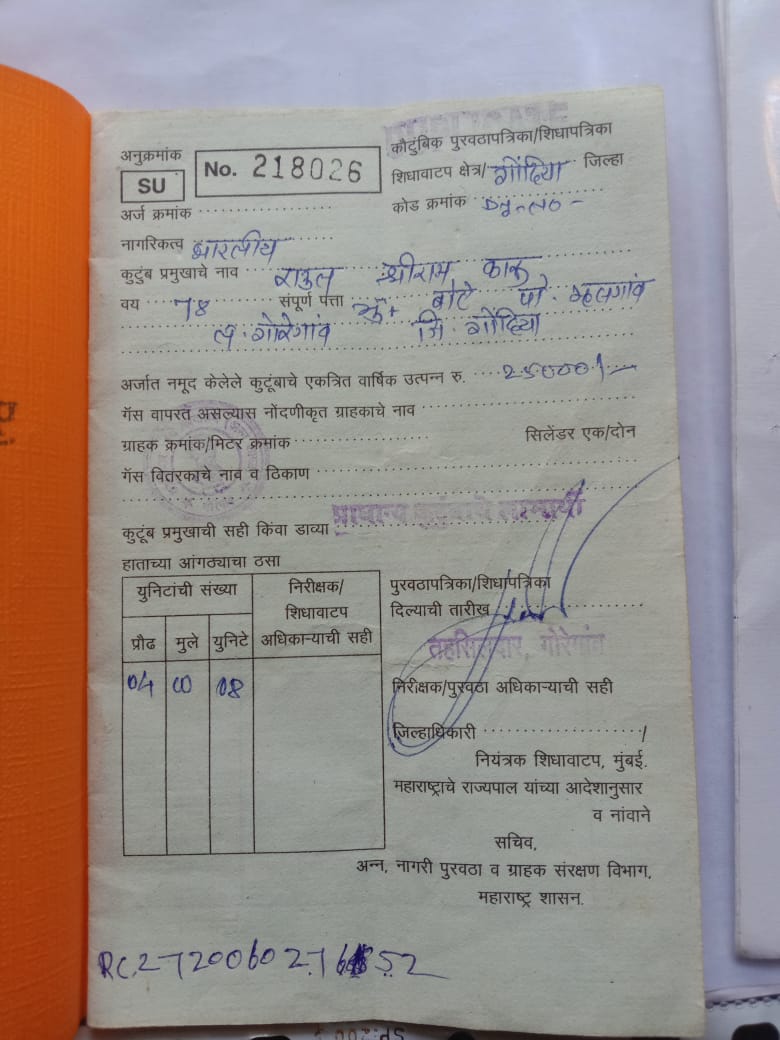 अनुक्रमांक
SU
No. 218026
कौटुंबिक पुरवठापत्रिका/शिधापत्रिका
शिधावाटप क्षेत्र/ गोंदिया जिल्हा
कोड क्रमांक
अर्ज क्रमांक
नागरिकत्व भारतीय
कुटुंब प्रमुखाचे नाव श्रीराम
वय संपूर्ण पत्ता मु+ बोटे पो. म्हसगांव
गोरेगांव जि. गोंदिया
अर्जात नमूद केलेले कुटूंबाचे एकत्रित वार्षिक उत्पन्न रु. 25000/-
गॅस वापरत असल्यास नोंदणीकृत ग्राहकाचे नाव
ग्राहक क्रमांक/मिटर क्रमांक सिलेंडर एक/दोन
गॅस वितरकाचे नाव व ठिकाण
कुटूंब प्रमुखाची सही किंवा डाव्या
हाताच्या आंगठ्याचा ठसा
युनिटांची संख्या
निरीक्षक/
शिधावाटप
अधिकाऱ्याची सही
प्रौढ मुले युनिटे
04 00 08
पुरवठापत्रिका/शिधापत्रिका
दिल्याची तारीख
तहसिलदार, गोरेगांव
निरीक्षक/पुरवठा अधिकाऱ्याची सही
जिल्हाधिकारी /
नियंत्रक शिधावाटप, मुंबई.
महाराष्ट्राचे राज्यपाल यांच्या आदेशानुसार
व नांवाने
सचिव,
अन्न, नागरी पुरवठा व ग्राहक संरक्षण विभाग,
महाराष्ट्र शासन.